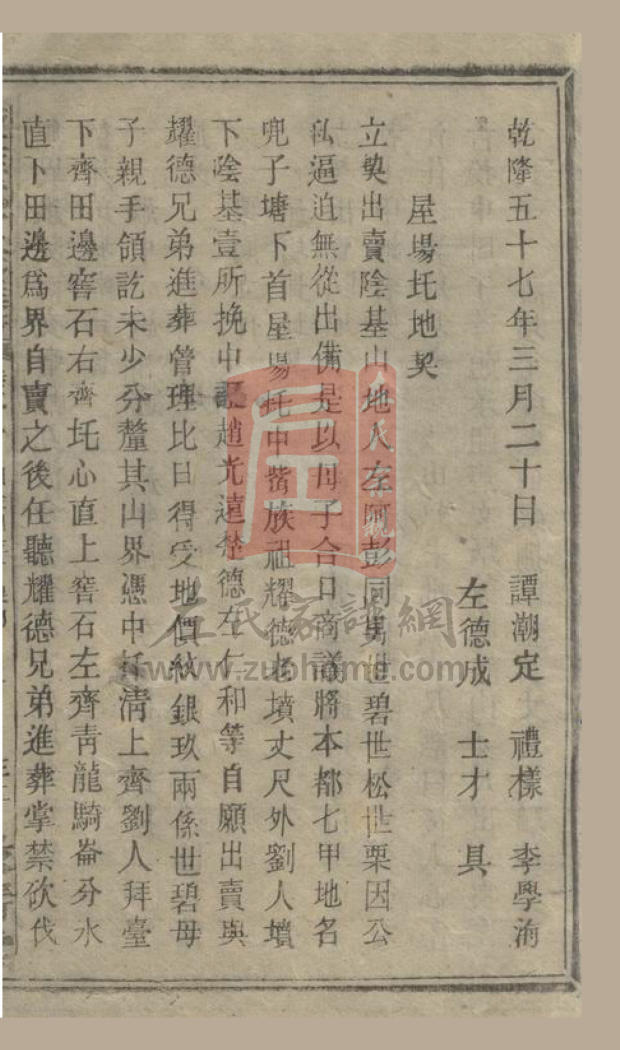 乾隆五十七年三月二十日 譚潮定 禮樣 李學海
左德成 士才 具
屋場圫地契
立契出賣陰基山地人左阿彭同男世碧世松世栗因公
私逼迫無從出備是以母子合口商議將本都七甲地名
兜子塘下首屋場圫中嵜族祖耀德老墳丈尺外劉人墳
下陰基壹所挽中譚趙光遠楚德左仁和等自願出賣與
耀德兄弟進葬管理比日得受地價紋銀玖兩係世碧母
子親手領訖未少分釐其山界憑中扦清上齊劉人拜臺
下齊田邊窖石右齊圫心直上窖石左齊靑龍騎崙分水
直下田邊爲界自賣之後任聽耀德兄弟進葬掌禁砍伐
左氏家譜網
www.zuohome.com